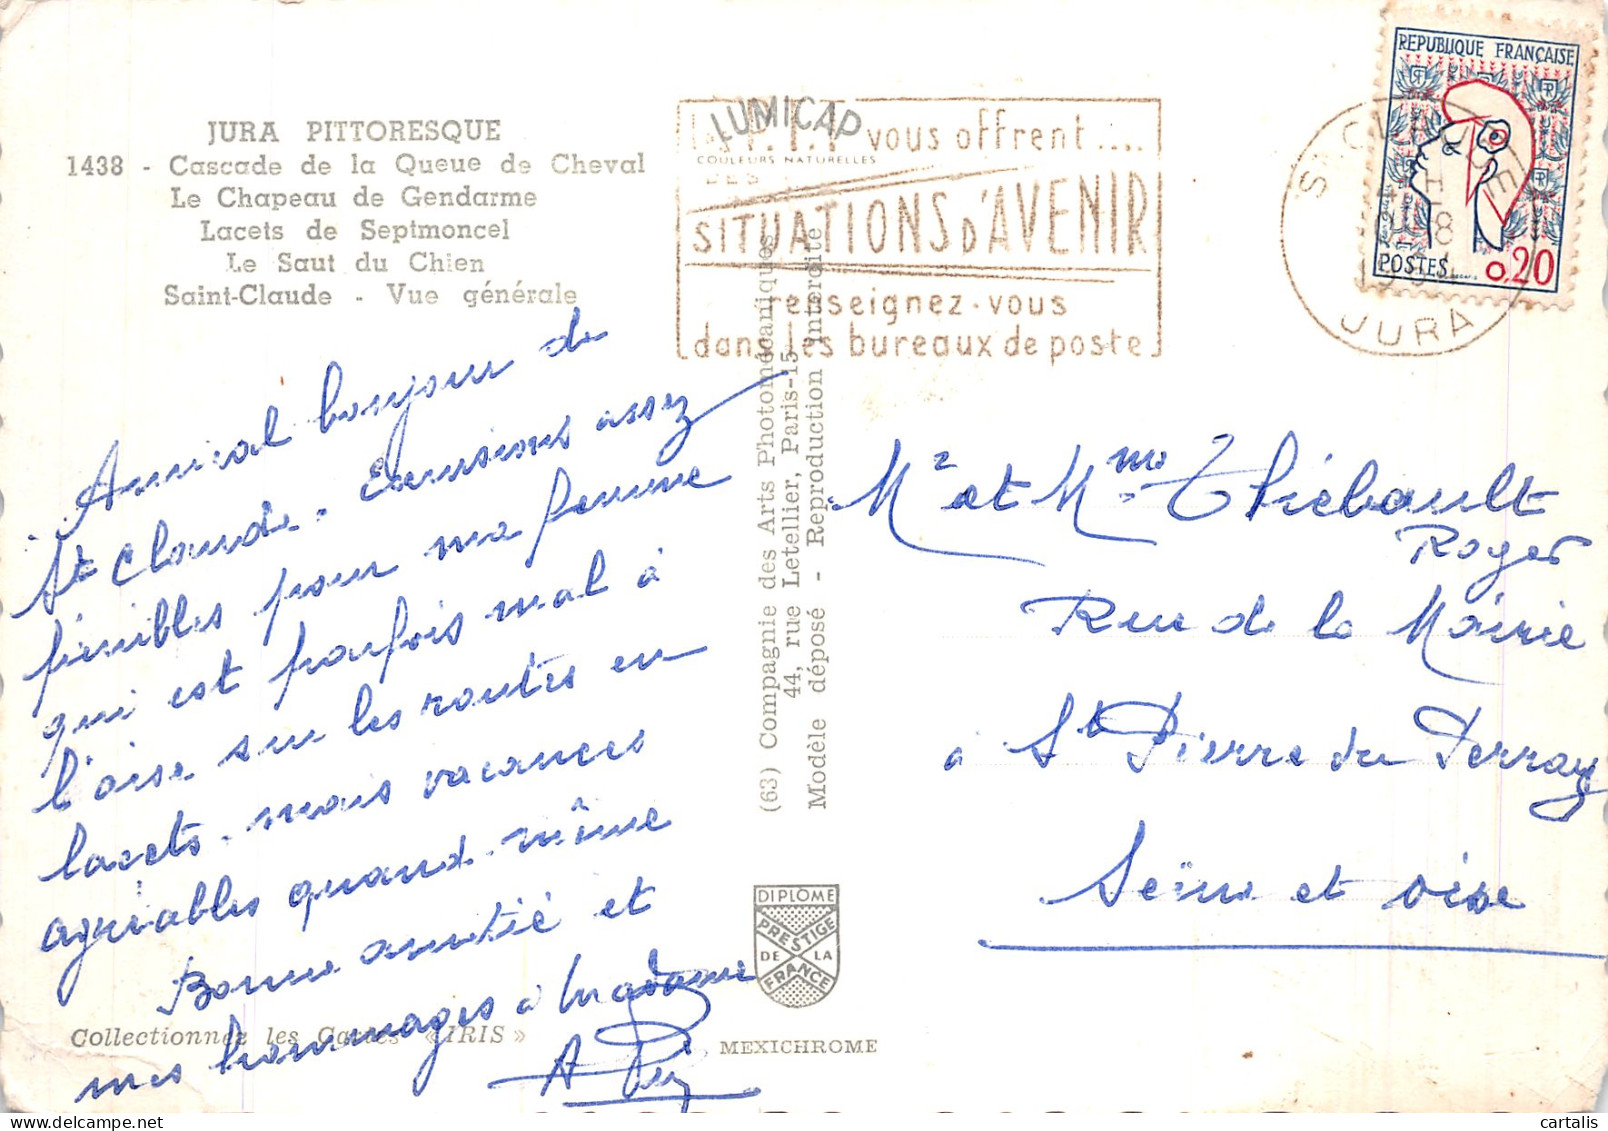 JURA PITTORESQUE
1438 - Cascade de la Queue de Cheval
Le Chapeau de Gendarme
Lacets de Septmoncel
Le Saut du Chien
Saint-Claude - Vue générale
LUMICAP
COULEURS NATURELLES
LES P.T.T vous offrent....
DES
SITUATIONS d'AVENIR
renseignez-vous
dans les bureaux de poste
ST CLAUDE
JURA
REPUBLIQUE FRANÇAISE
POSTES 0,20
Amical bonjour de
St Claude. Excursions assez
pénibles pour ma femme
qui est parfois mal à
l'aise sur les routes en
lacets. nous vacances
agréables quand même
Bonne amitié et
mes hommages à Madame
Mr et Mme Thiébault
Roger
Rue de la Mairie
à St Pierre du Perray
Seine et oise
(63) Compagnie des Arts Photomécaniques
44, rue Letellier, Paris-15
Modèle déposé - Reproduction interdite
DIPLOME
PRESTIGE
DE LA
FRANCE
Collectionnez les Cartes «IRIS»
MEXICHROME
cartalis